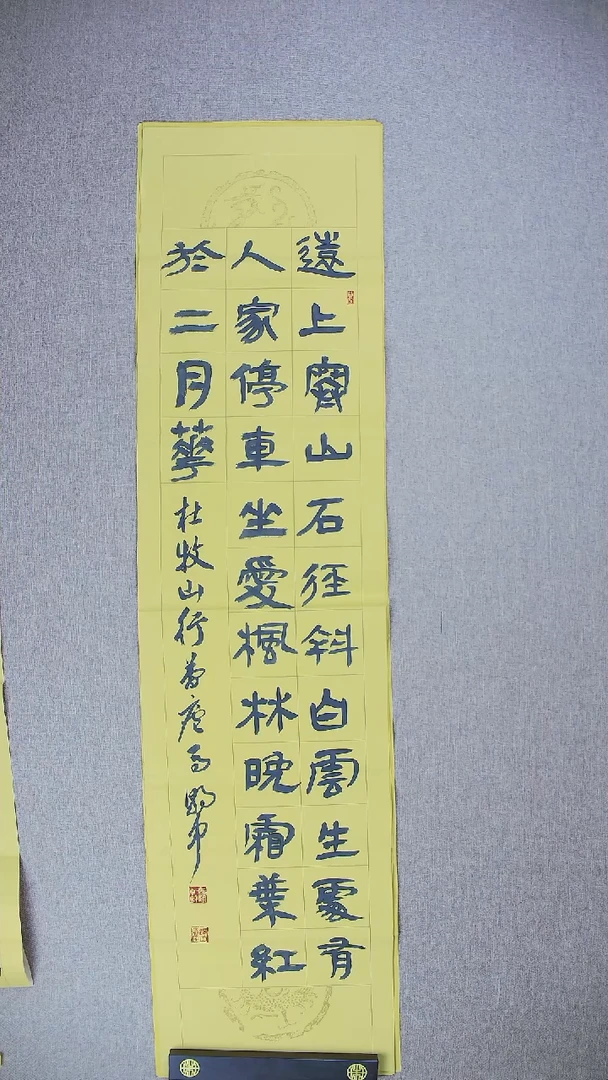 遠上寒山石徑斜白雲生處有
人家停車坐愛楓林晚霜葉紅
於二月華
杜牧山行